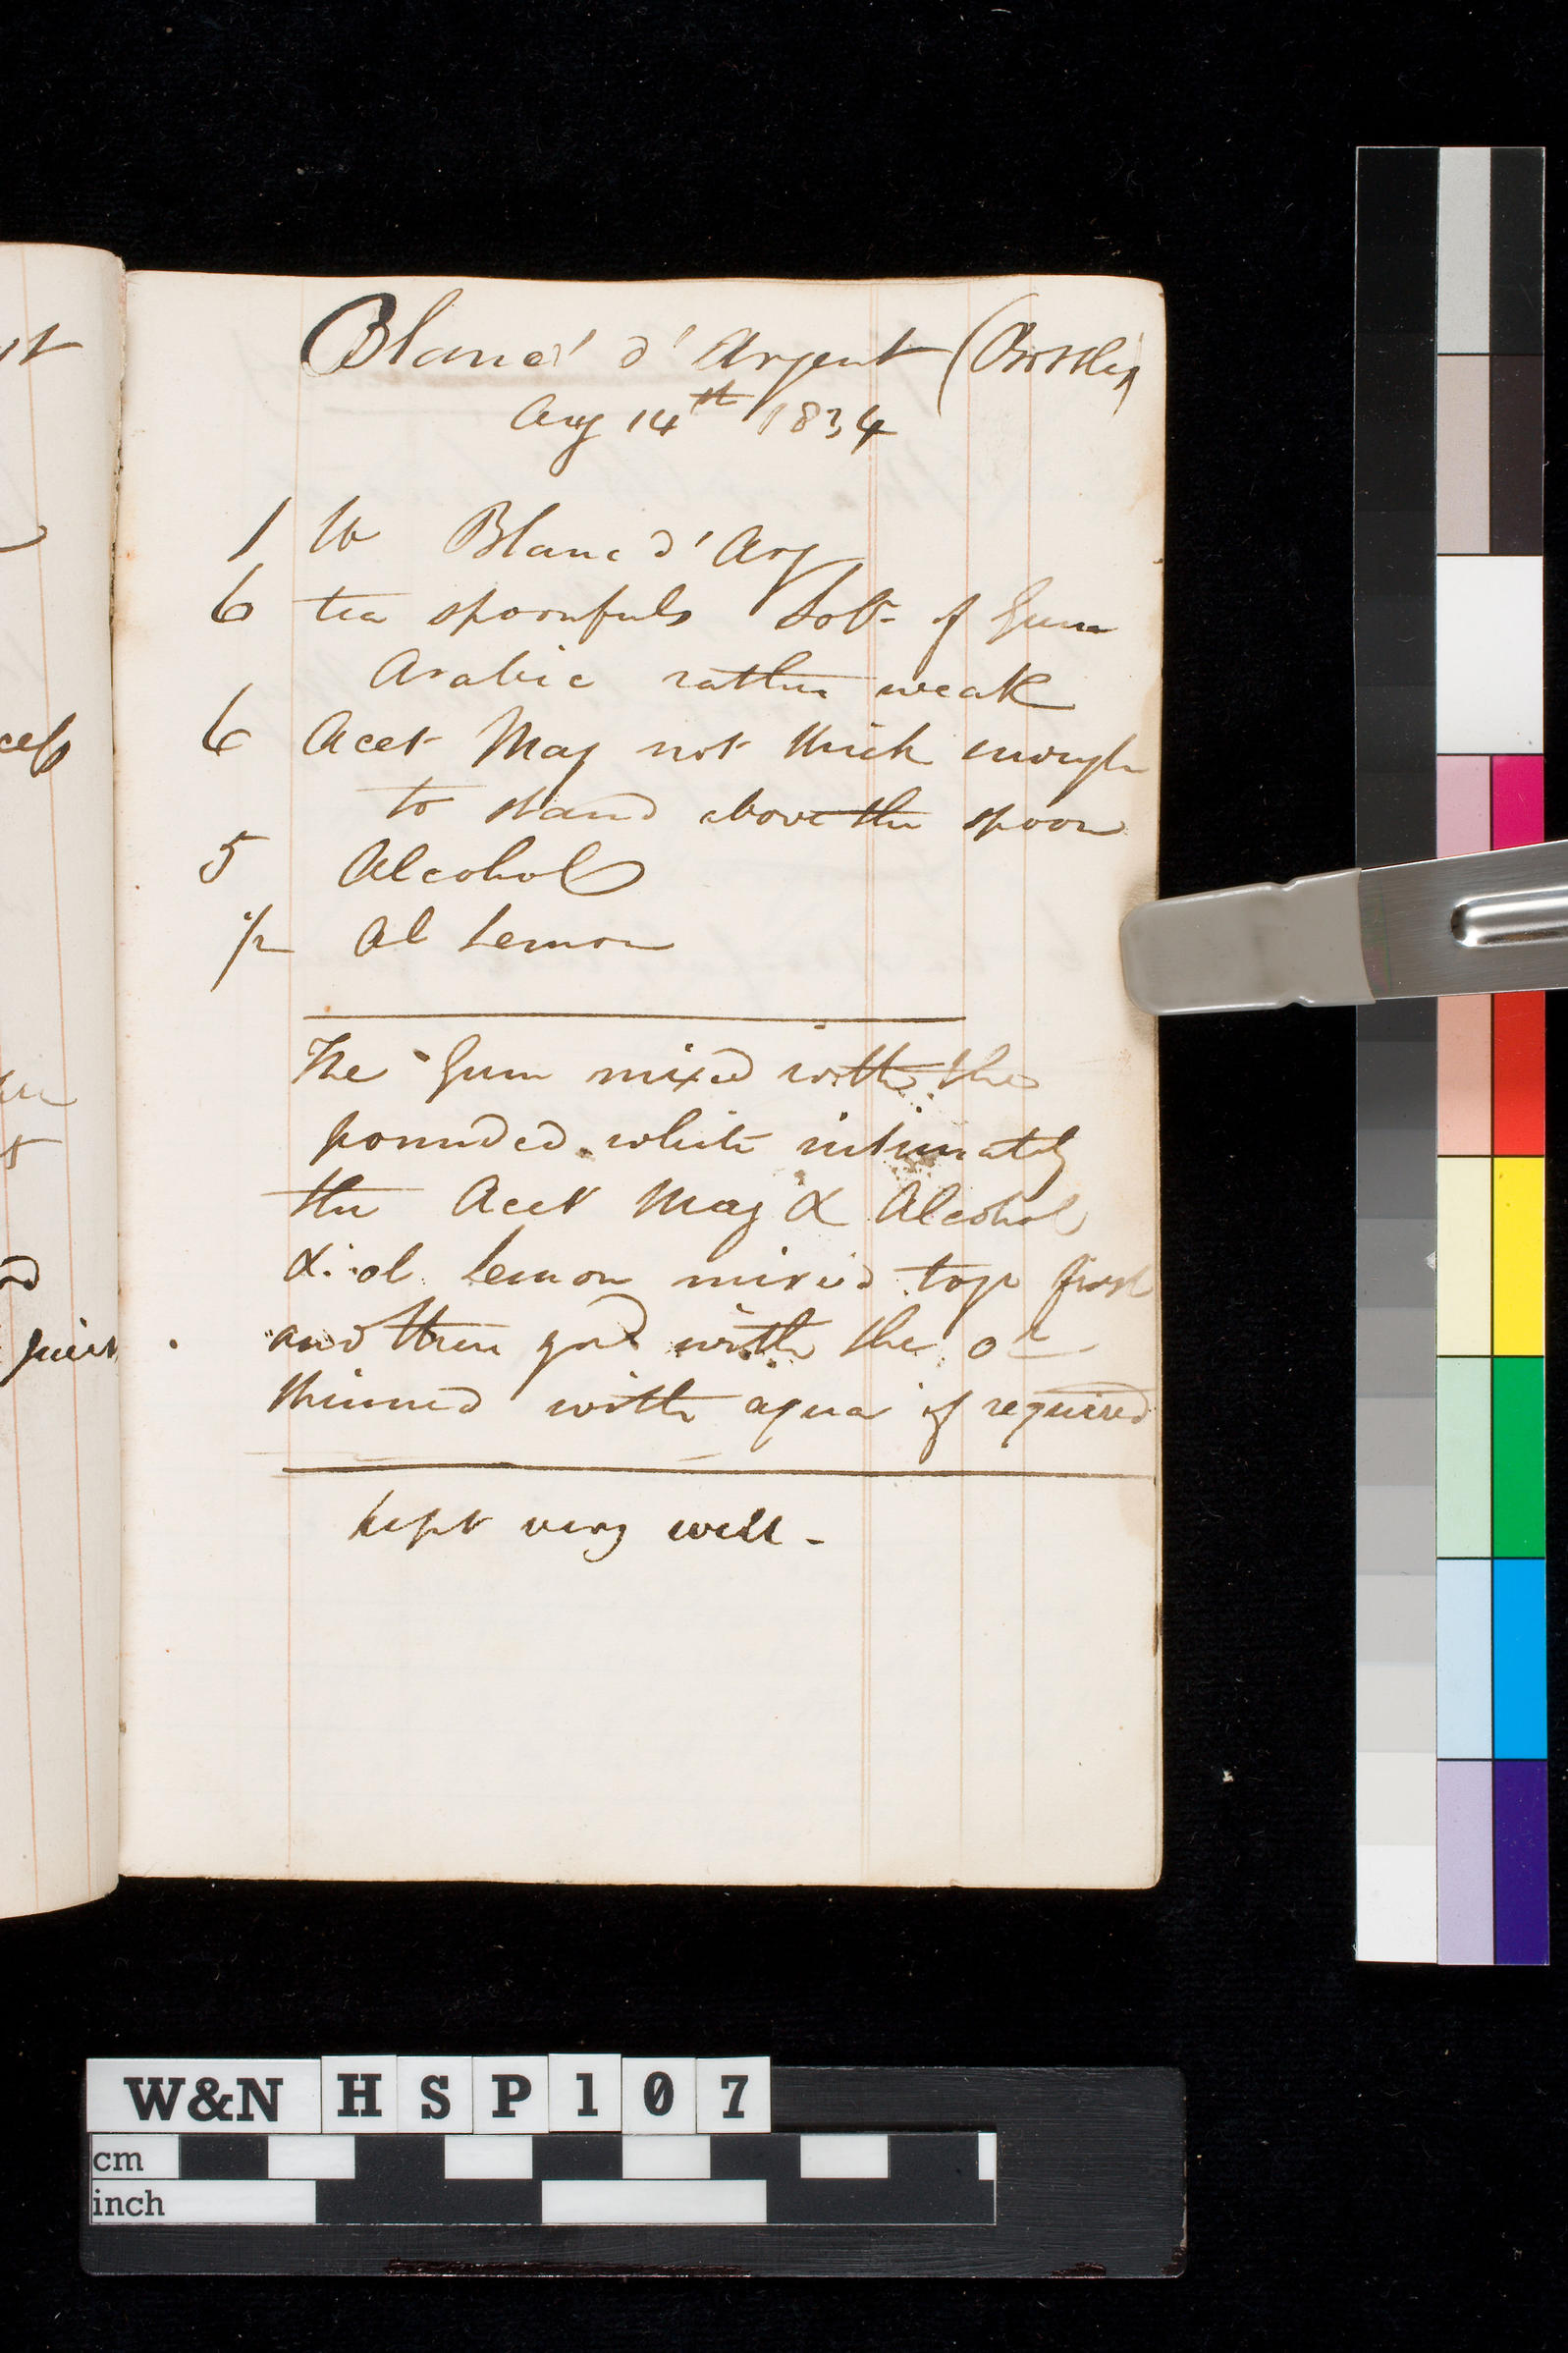 Blanc d'Argent (Bottles)
Aug 14th 1834
1 lb Blanc d'Arg
6 tea spoonfuls Soln of Gum
Arabic rather weak
6 Acet Mag not thick enough
to stand above the spoon
5 Alcohol
1/2 Ol Lemon
The Gum mixed with the
pounded white intimately
the Acet Mag & Alcohol
& ol Lemon mixed tog first
and then grd with the
thinned with aqua if required
kept very well -
st
cess
5
W&N HSP107
cm
inch